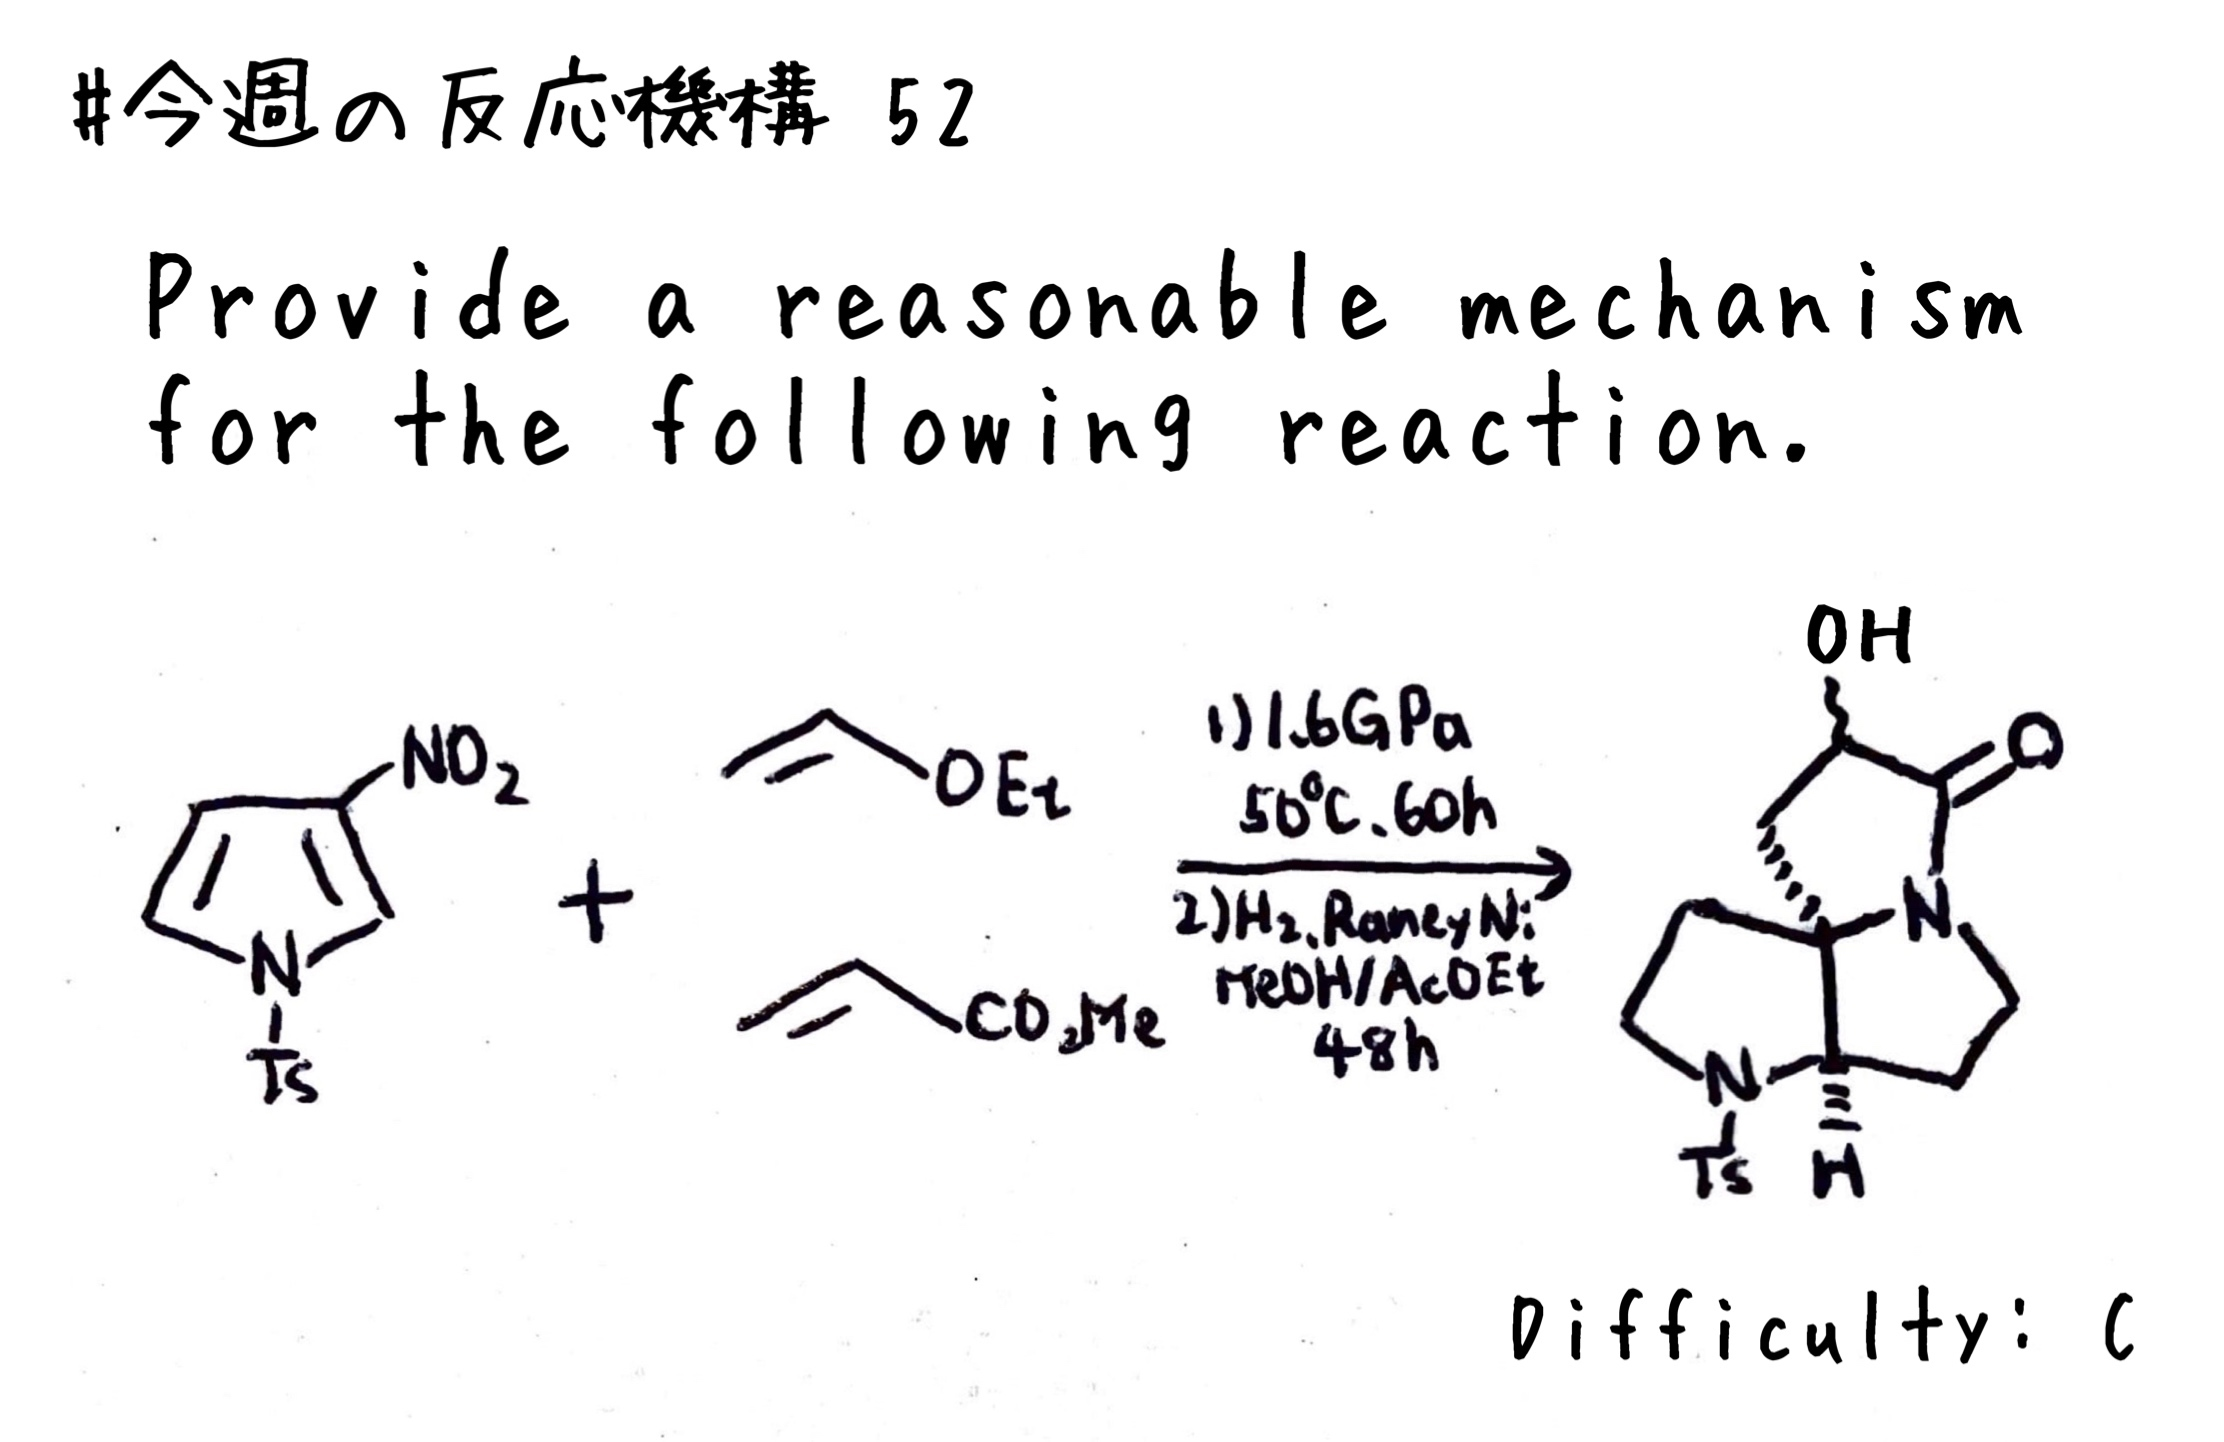 #今週の反応機構 52
Provide a reasonable mechanism
for the following reaction.
NO₂
N
Ts
+
OEt
CO₂Me
1) 1.6GPa
50℃. 60h
2) H₂, Raney Ni
MeOH/AcOEt
48h
OH
O
N
N
Ts
H
Difficulty: C